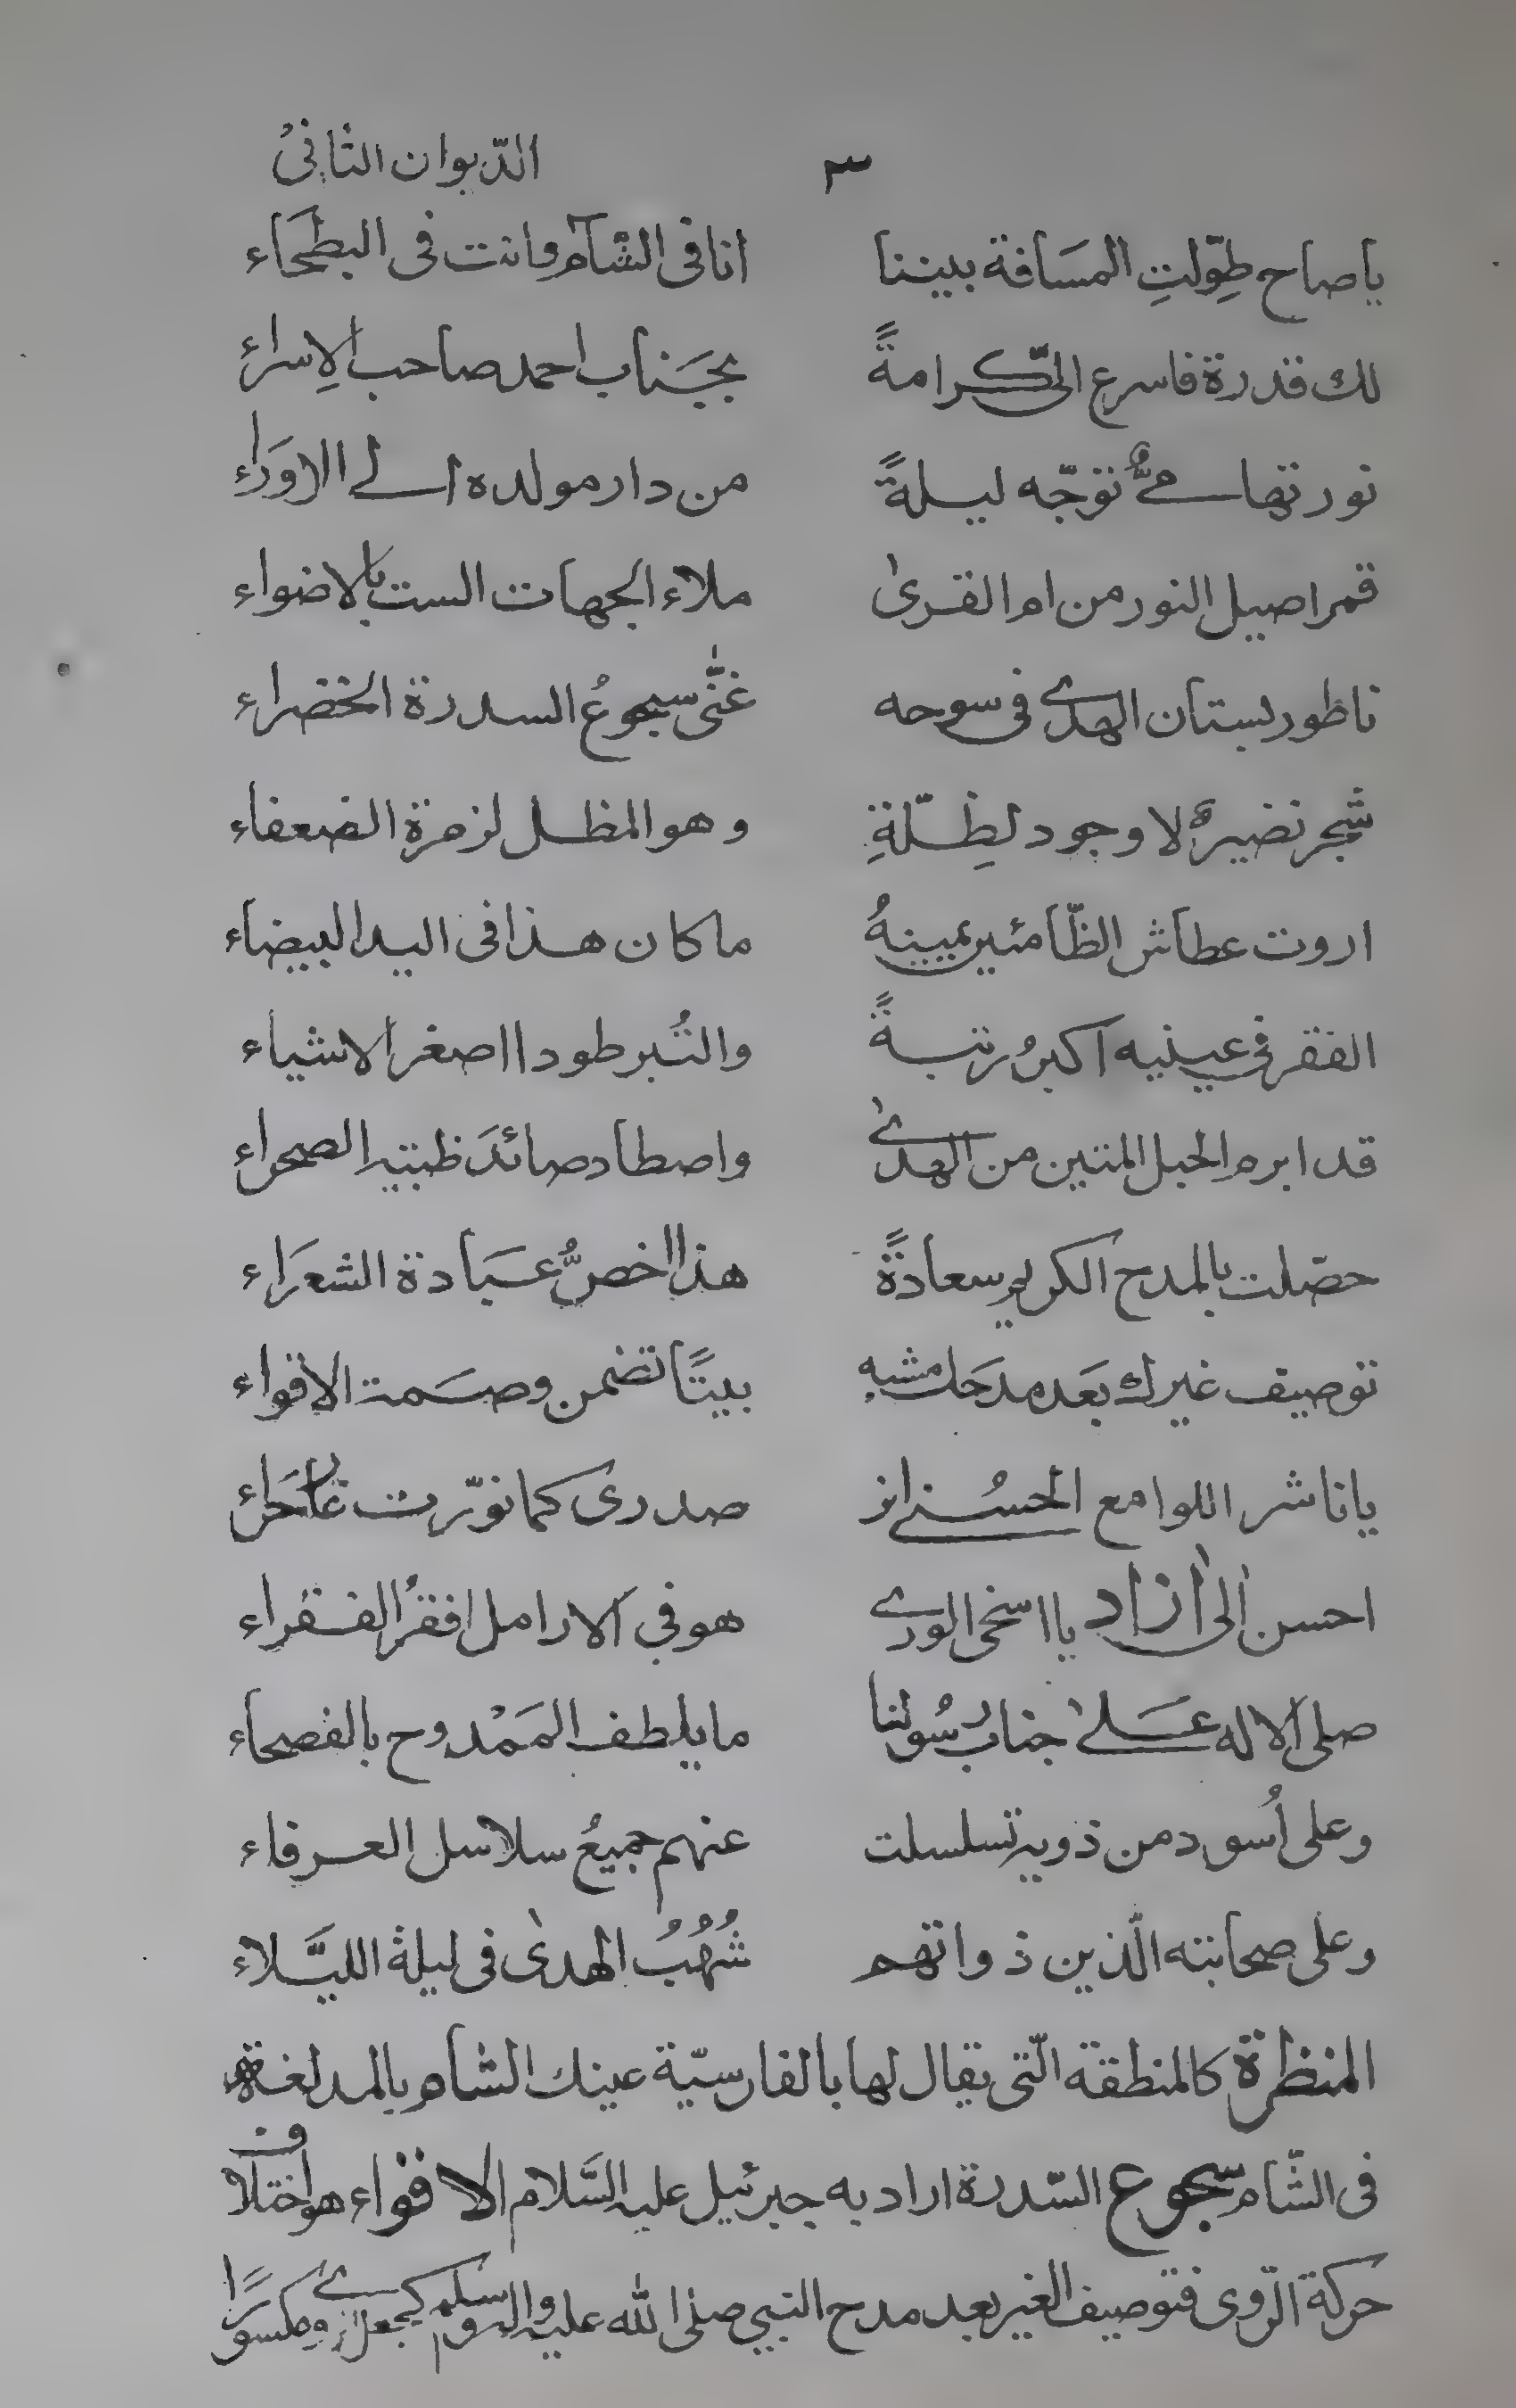 ٣ الدّيوان الثانیْ
ياصاح طِوّلتِ المسَافة بيننا انا فی الشآم وانت فی البطحَاء
لك قدرة فاسرع الیّ كرامةً بجَناب احمد صاحب الاِسراءِ
نور تهامیٌّ توجّه ليلةً من دار مولده الے الاورَاء
قمر اصيل النور من ام القریٰ ملاء الجهات الست بالاضواء
ناظور بستان الهدے فی سوحه غنّٰی سجوعُ السدرة الخضراء
شجر نضيرٌ لا وجود لظِلّةِ وهو المظل لزمرة الضعفاء
اروت عطاش الظّامئين يمينهُ ما كان هذا فی اليد البيضاء
الفقر فی عينيه اكبرُ رتبةً والتُبر طودا اصغر الاشياء
قد ابرم الحبل المتين من الهدےٰ واصطاد صائدَ ظبية الصحراء
حصّلت بالمدح الكريم سعادةً هذا اخصُّ عبَادة الشعرَاء
توصيف غيرك بعَد مدحَك مشبه بيتًا تضمن وصَمة الاقواء
يا ناشر اللوامع الحسُنے انر صدری كما نوّرت غار حَراء
احسن الیٰ ازاد يا اسخی الورے هو فی الارامل افقرُ الفقراء
صلی الاله علےٰ جناب رسُولنا ما يلطف المَمْدوح بالفصحاء
وعلی اُسود من ذويه تسلسلت عنهم جميعُ سلاسل العرفاء
وعلی صحابته الّذين ذواتهم شُهُبُ الهدیٰ فی ليلة الليَّلاء
المنظرة كالمنطقة الّتی يقال لها بالفارسيّة عينك الشام بالمد لغة
فی الشّام سجوع السّدرة اراد به جبرئيل عليه السَّلام الاقواء هو اختلاف
حركة الرّوی فتوصيف الغير بعد مدح النبی صلی الله عليه واله وسلم كجعل الروے مكسورًا